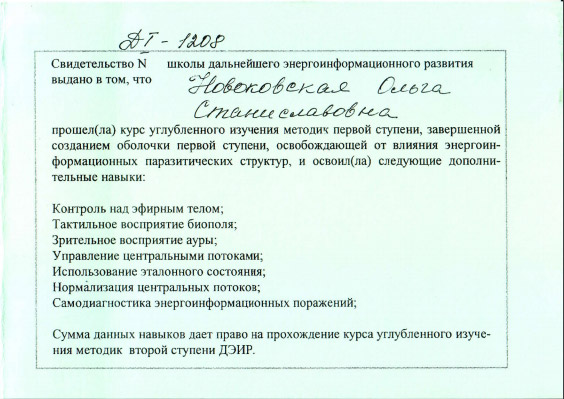 ДТ - 1208
Свидетельство N школы дальнейшего энергоинформационного развития
выдано в том, что Новоковская Ольга
Станиславовна
прошел(ла) курс углубленного изучения методик первой ступени, завершенной
созданием оболочки первой ступени, освобождающей от влияния энергоин-
формационных паразитических структур, и освоил(ла) следующие дополни-
тельные навыки:
Контроль над эфирным телом;
Тактильное восприятие биополя;
Зрительное восприятие ауры;
Управление центральными потоками;
Использование эталонного состояния;
Нормализация центральных потоков;
Самодиагностика энергоинформационных поражений;
Сумма данных навыков дает право на прохождение курса углубленного изуче-
ния методик второй ступени ДЭИР.